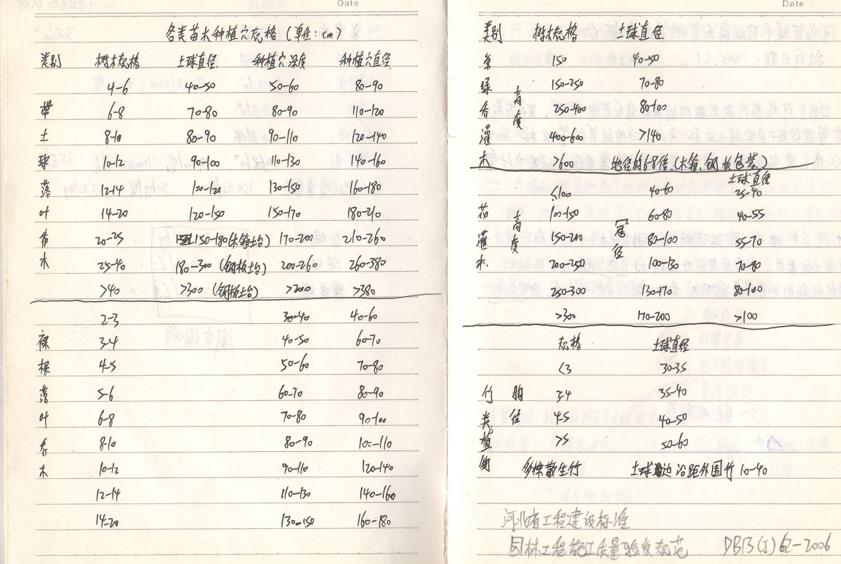 Date
各类苗木种植穴规格（单位：cm）
类别 树木规格 土球直径 种植穴深度 种植穴直径
4-6 40-50 50-60 80-90
带 6-8 70-80 80-90 110-120
土 8-10 80-90 90-110 120-140
球 10-12 90-100 110-130 140-160
落 12-14 100-120 130-150 160-180
叶 14-20 120-150 150-170 180-210
乔 20-25 150-180(木箱土台) 170-200 210-260
木 25-40 180-300(钢板土台) 200-260 260-380
>40 >300(钢板土台) >200 >380
2-3 30-40 40-60
裸 3-4 40-50 60-70
根 4-5 50-60 70-80
落 5-6 60-70 80-90
叶 6-8 70-80 90-100
乔 8-10 80-90 100-110
木 10-12 90-110 120-140
12-14 110-130 140-160
14-20 130-150 160-180
Date
类别 树木规格 土球直径
常 150 40-50
绿 150-250 70-80
乔 高 250-400 80-100
灌 度 400-600 >140
木 >600 地径的6-8倍(木箱，钢板包装)
土球直径
≤100 40-60 25-40
花 高 100-150 60-80 40-55
灌 度 冠 150-200 80-100 55-70
木 径 200-250 100-130 70-80
250-300 130-170 80-100
>300 170-200 >100
规格 土球直径
<3 30-35
竹 胸 3-4 35-40
类 径 4-5 40-50
植 >5 50-60
物 多株散生竹 土球边沿距外围竹 10-40
河北省工程建设标准
园林工程施工质量验收规范 DB13(J)62-2006